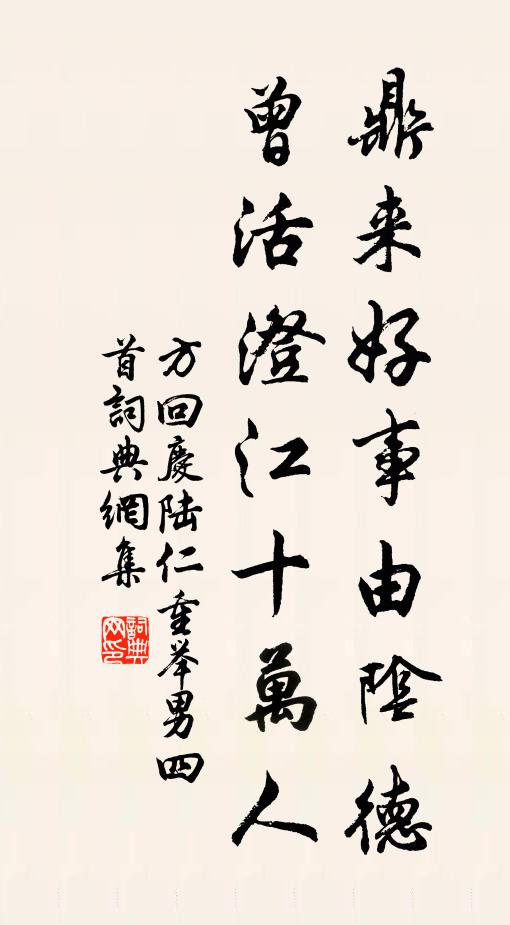 鼎来好事由陰德
曾活澄江十萬人
方回慶陸仁重举男四
首詞典網集
詞典网印